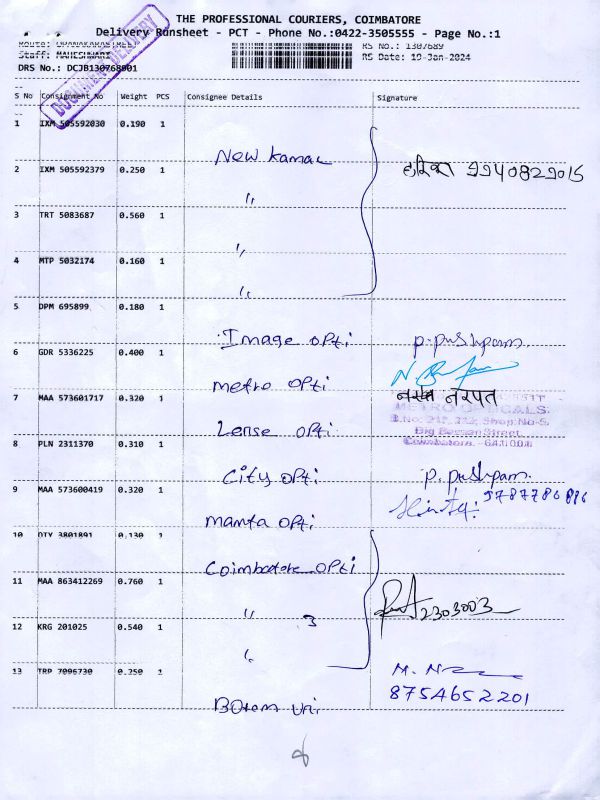 THE PROFESSIONAL COURIERS, COIMBATORE
Delivery Runsheet - PCT - Phone No.:0422-3505555 - Page No.:1
Staff: MAHESHWARI
RS No.: 1307689
RS Date: 19-Jan-2024
DRS No.: DCJB130768901
DOCUMENT DELIVERY
S No Consignment No Weight PCS Consignee Details Signature
1 IXM 505592030 0.190 1 New kamal
2 IXM 505592379 0.250 1 " 9940829015
3 TRT 5083687 0.560 1 "
4 MTP 5032174 0.160 1 "
5 DPM 695899 0.180 1 Image opti p. pushpam.
6 GDR 5336225 0.400 1 metro opti
7 MAA 573601717 0.320 1 Lense opti नरपत
METRO OPTICALS
Big Bazaar Street
Coimbatore - 641 001
8 PLN 2311370 0.310 1 City opti p. pushpam.
9 MAA 573600419 0.320 1 mamta opti 9787786886
10 OTY 3801891 0.130 1 Coimbatore opti
11 MAA 863412269 0.760 1 " 3 2303003
12 KRG 201025 0.540 1 "
13 TRP 7096730 0.250 1 8754652201